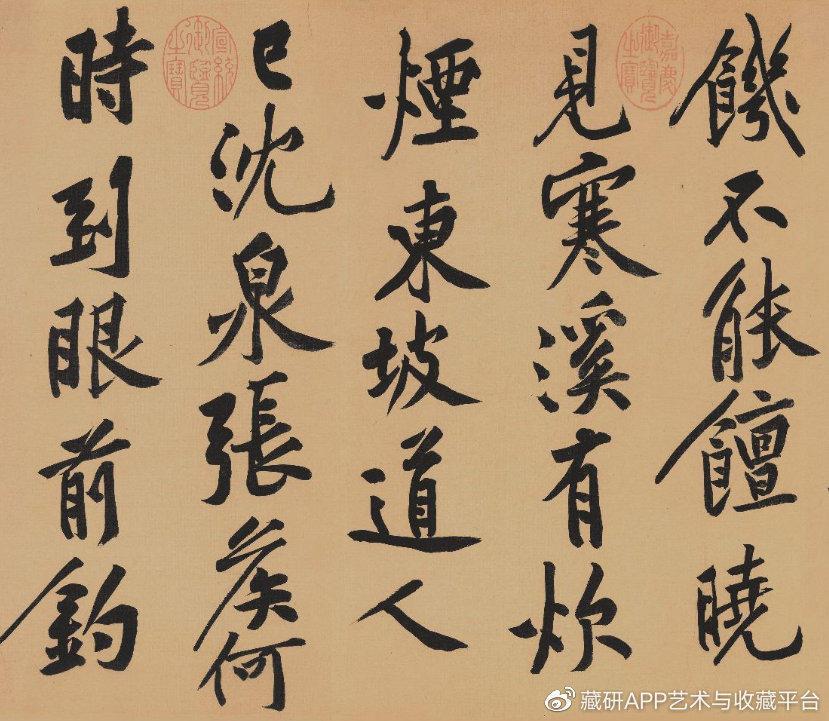 饑不能饘曉
見寒溪有炊
煙東坡道人
已沈泉張矦何
時到眼前釣
嘉慶御覽之寶
宣統御覽之寶
藏研APP艺术与收藏平台